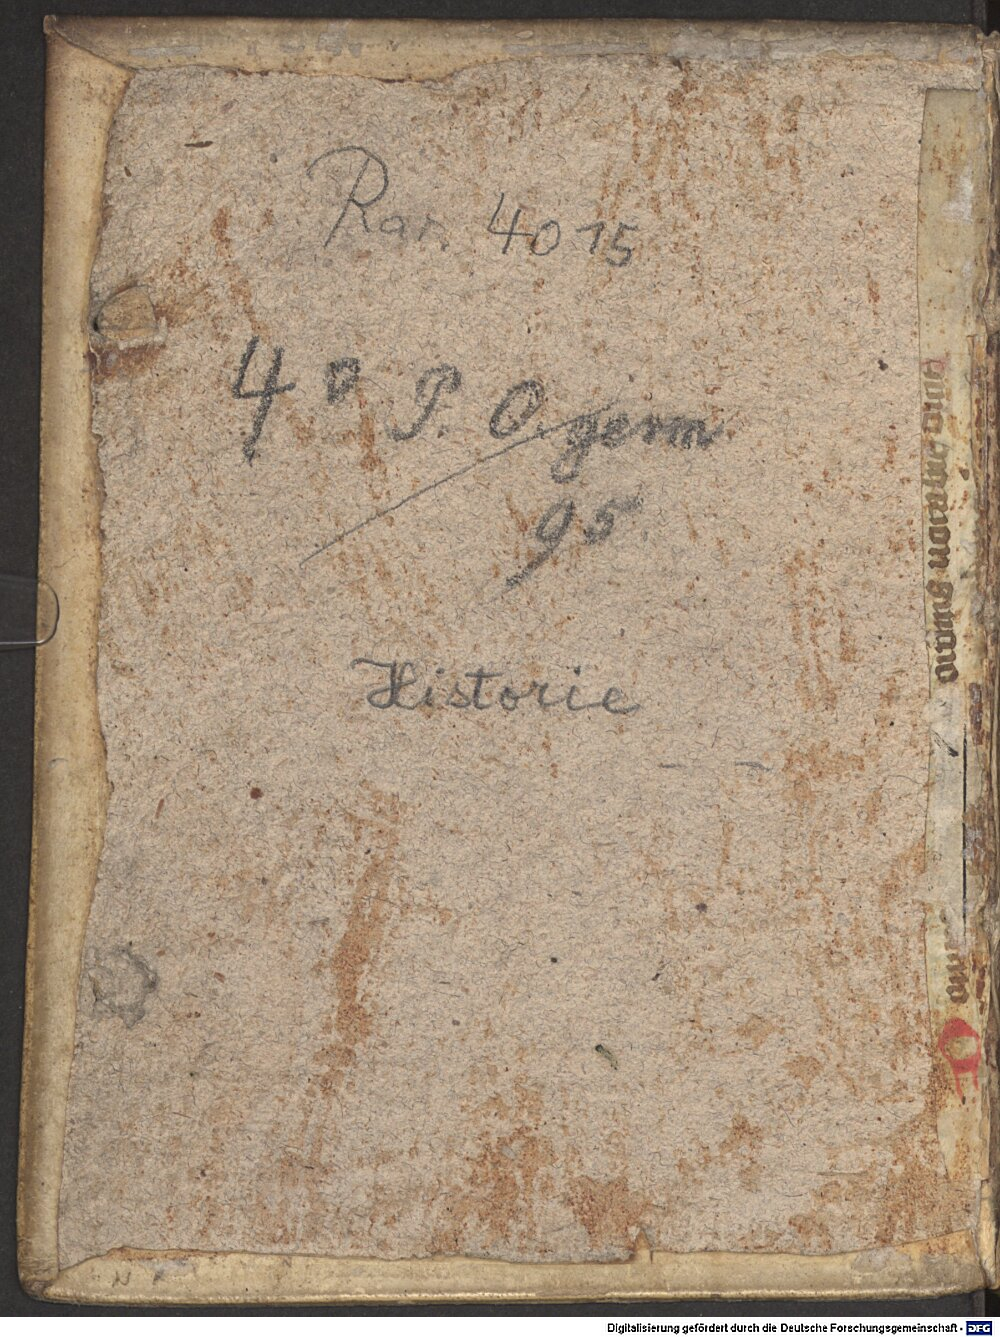 Rar. 4015
4° P. O. germ
95
Historie
Digitalisierung gefördert durch die Deutsche Forschungsgemeinschaft - DFG